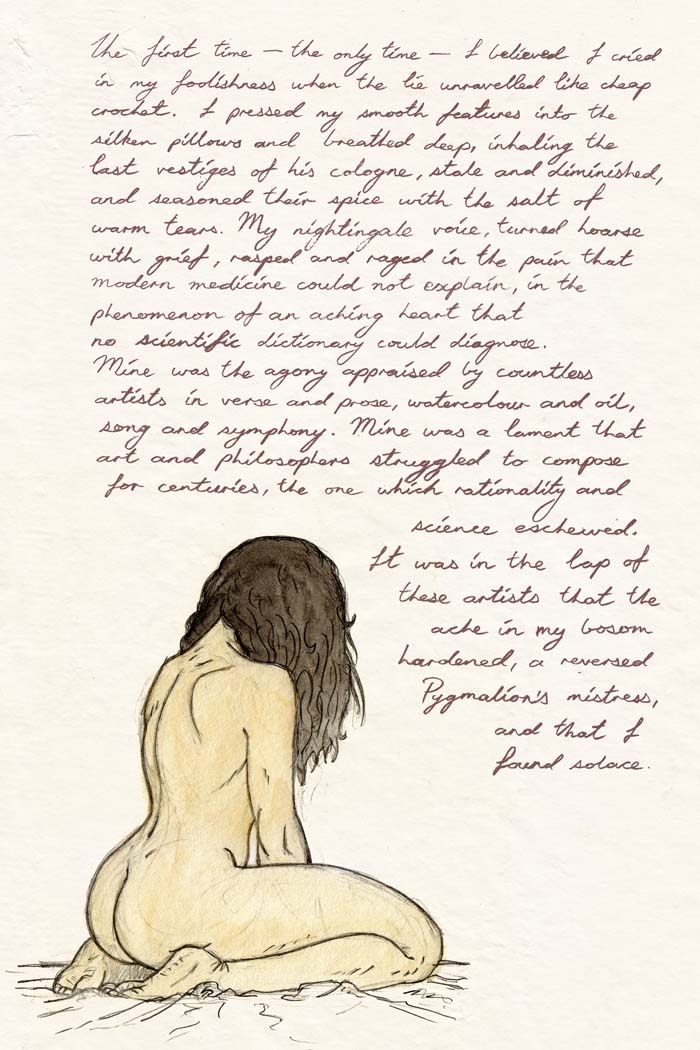 The first time – the only time – I believed I cried
in my foolishness when the lie unravelled like cheap
crochet. I pressed my smooth features into the
silken pillows and breathed deep, inhaling the
last vestiges of his cologne, stale and diminished,
and seasoned their spice with the salt of
warm tears. My nightingale voice, turned hoarse
with grief, rasped and raged in the pain that
modern medicine could not explain, in the
phenomenon of an aching heart that
no scientific dictionary could diagnose.
Mine was the agony appraised by countless
artists in verse and prose, watercolour and oil,
song and symphony. Mine was a lament that
art and philosophers struggled to compose
for centuries, the one which rationality and
science eschewed.
It was in the lap of
these artists that the
ache in my bosom
hardened, a reversed
Pygmalion's mistress,
and that I
found solace.